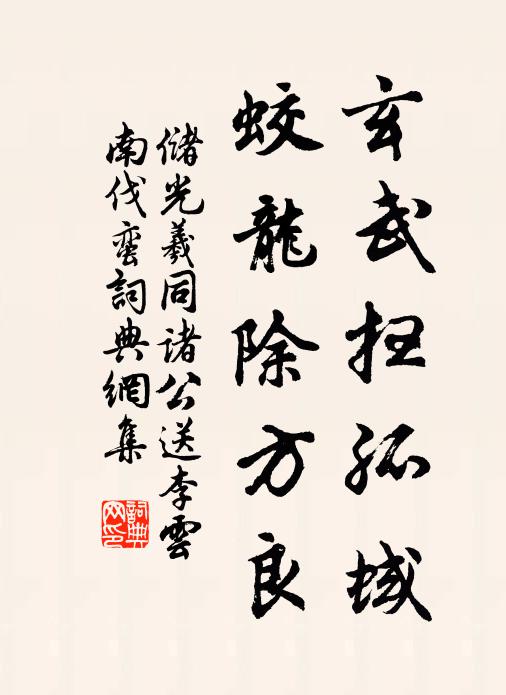 玄武扫孤蜮
蛟龍除方良
儲光羲同諸公送李雲
南伐蛮詞典網集
詞典
网印